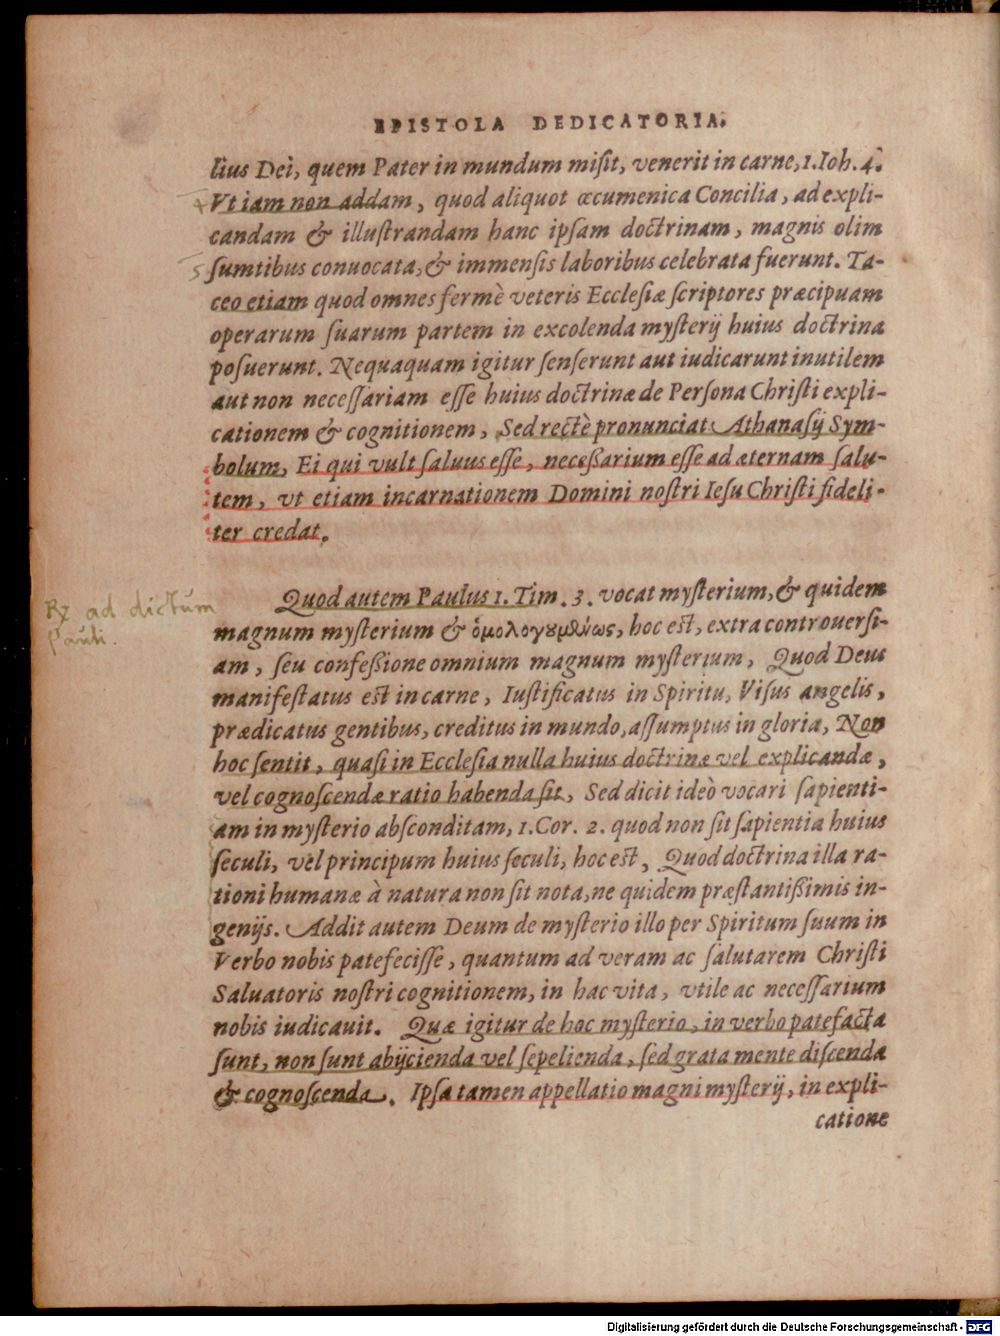 EPISTOLA DEDICATORIA.
lius Dei, quem Pater in mundum misit, venerit in carne, 1. Ioh. 4.
4 Vt iam non addam, quod aliquot œcumenica Concilia, ad expli-
candam & illustrandam hanc ipsam doctrinam, magnis olim
5 sumtibus conuocata, & immensis laboribus celebrata fuerunt. Ta-
ceo etiam quod omnes fermè veteris Ecclesiæ scriptores præcipuam
operarum suarum partem in excolenda mysterij huius doctrina
posuerunt. Nequaquam igitur senserunt aut iudicarunt inutilem
aut non necessariam esse huius doctrinæ de Persona Christi expli-
cationem & cognitionem, Sed rectè pronunciat Athanasij Sym-
bolum, Ei qui vult saluus esse, necessarium esse ad æternam salu-
tem, vt etiam incarnationem Domini nostri Iesu Christi fideli-
ter credat.
Rx ad dictum
Pauli.
Quod autem Paulus 1. Tim. 3. vocat mysterium, & quidem
magnum mysterium & ὁμολογουμένως, hoc est, extra controuersi-
am, seu confessione omnium magnum mysterium, Quod Deus
manifestatus est in carne, Iustificatus in Spiritu, Visus angelis,
prædicatus gentibus, creditus in mundo, assumptus in gloria, Non
hoc sentit, quasi in Ecclesia nulla huius doctrinæ vel explicandæ,
vel cognoscendæ ratio habenda sit, Sed dicit ideò vocari sapienti-
am in mysterio absconditam, 1. Cor. 2. quod non sit sapientia huius
seculi, vel principum huius seculi, hoc est, Quod doctrina illa ra-
tioni humanæ à natura non sit nota, ne quidem præstantissimis in-
genijs. Addit autem Deum de mysterio illo per Spiritum suum in
Verbo nobis patefecisse, quantum ad veram ac salutarem Christi
Saluatoris nostri cognitionem, in hac vita, vtile ac necessarium
nobis iudicauit. Quæ igitur de hoc mysterio, in verbo patefacta
sunt, non sunt abijcienda vel sepelienda, sed grata mente discenda
& cognoscenda. Ipsa tamen appellatio magni mysterij, in expli-
catione
Digitalisierung gefördert durch die Deutsche Forschungsgemeinschaft - DFG